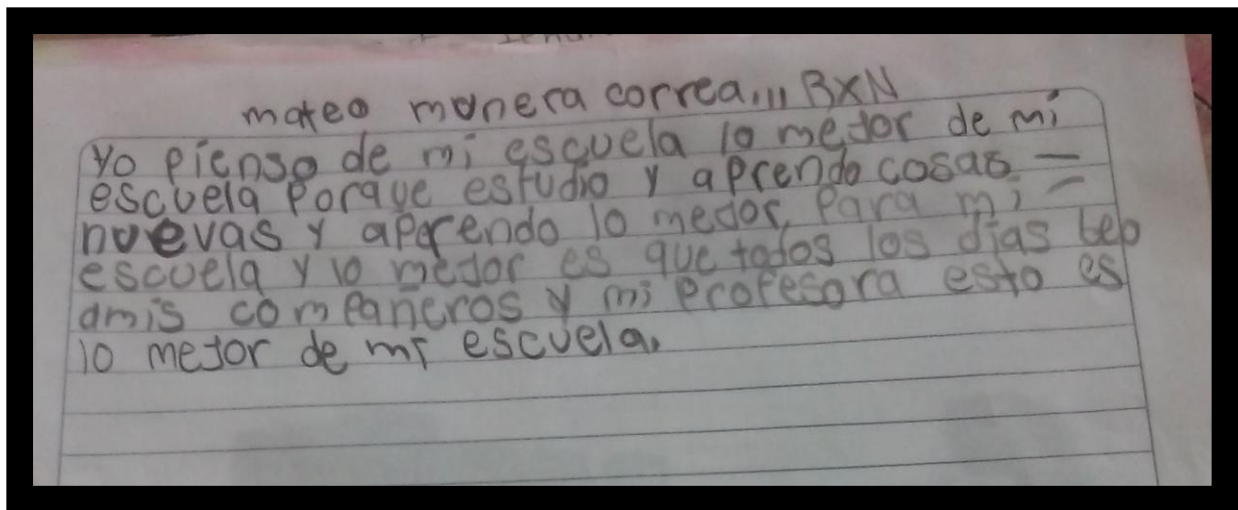 mateo monera correa,,, BXN
Yo Pienso de mi escuela lo mejor de mi
escuela Porque estudio y aprendo cosas =
nuevas y aprendo lo mejor, Para mi
escuela y lo mejor es que todos los días beo
amis compañeros y mi profesora esto es
lo mejor de mi escuela.